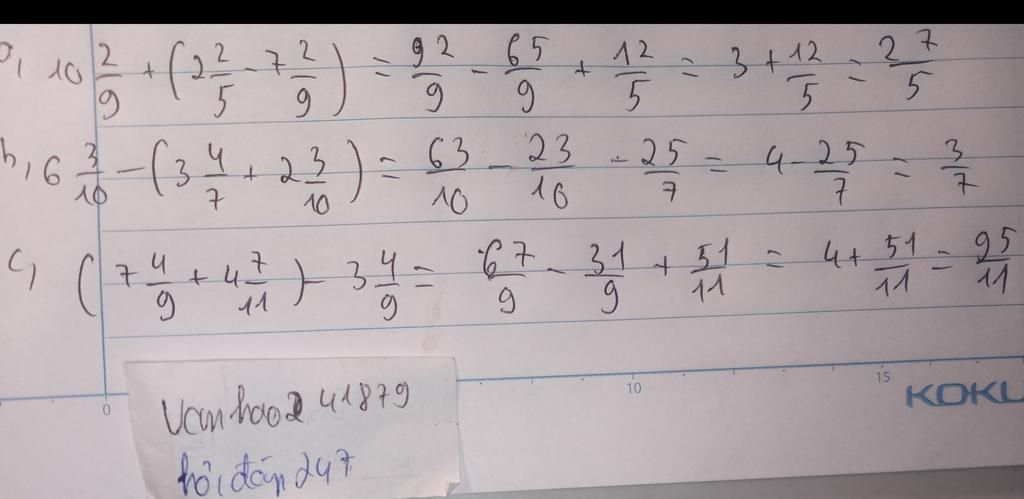 a, 10 2/9 + (2 2/5 - 7 2/9) = 92/9 - 65/9 + 12/5 = 3 + 12/5 = 27/5
b, 6 3/10 - (3 4/7 + 2 3/10) = 63/10 - 23/10 - 25/7 = 4 - 25/7 = 3/7
c, (7 4/9 + 4 7/11) - 3 4/9 = 67/9 - 31/9 + 51/11 = 4 + 51/11 = 95/11
0 10 15 KOKU
Vanhao241879
hỏi đáp 247